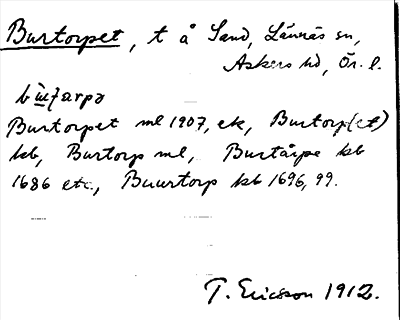 Burtorpet, t å Sand, Lännäs sn,
Askers hd, Ör. l.
Burtorpet ml 1907, ek, Burtorp(et)
kb, Burtorp ml, Burtårpe kb
1686 etc., Buurtorp kb 1696, 99.
T. Ericsson 1912.